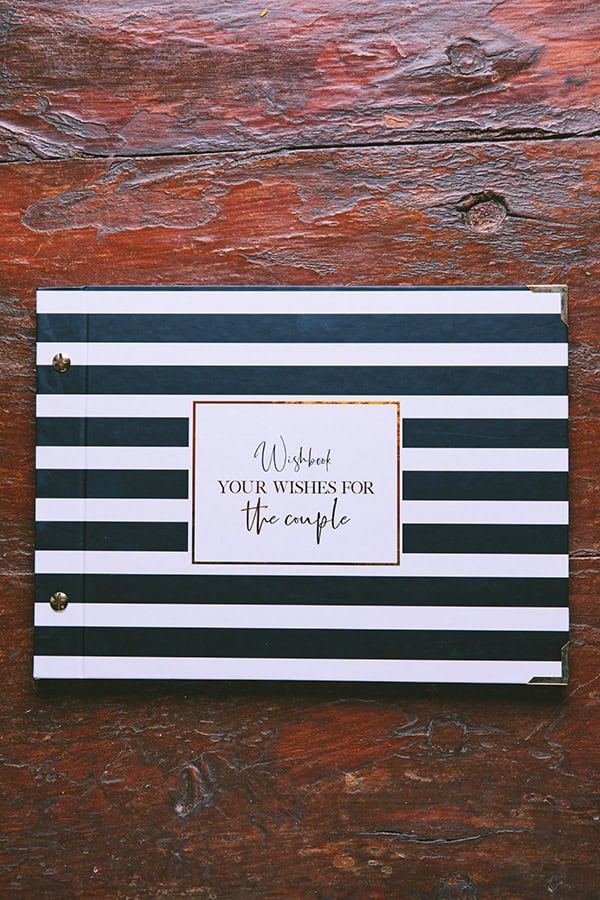 Wishbook
YOUR WISHES FOR
the couple